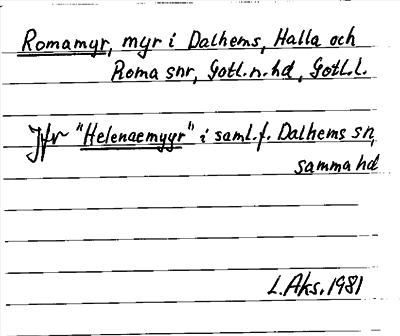 Romamyr, myr i Dalhems, Halla och
Roma snr, Gotl.n.hd, Gotl.l.
Jfr "Helenaemyyr" i saml.f. Dalhems sn,
samma hd
L.Aks. 1981